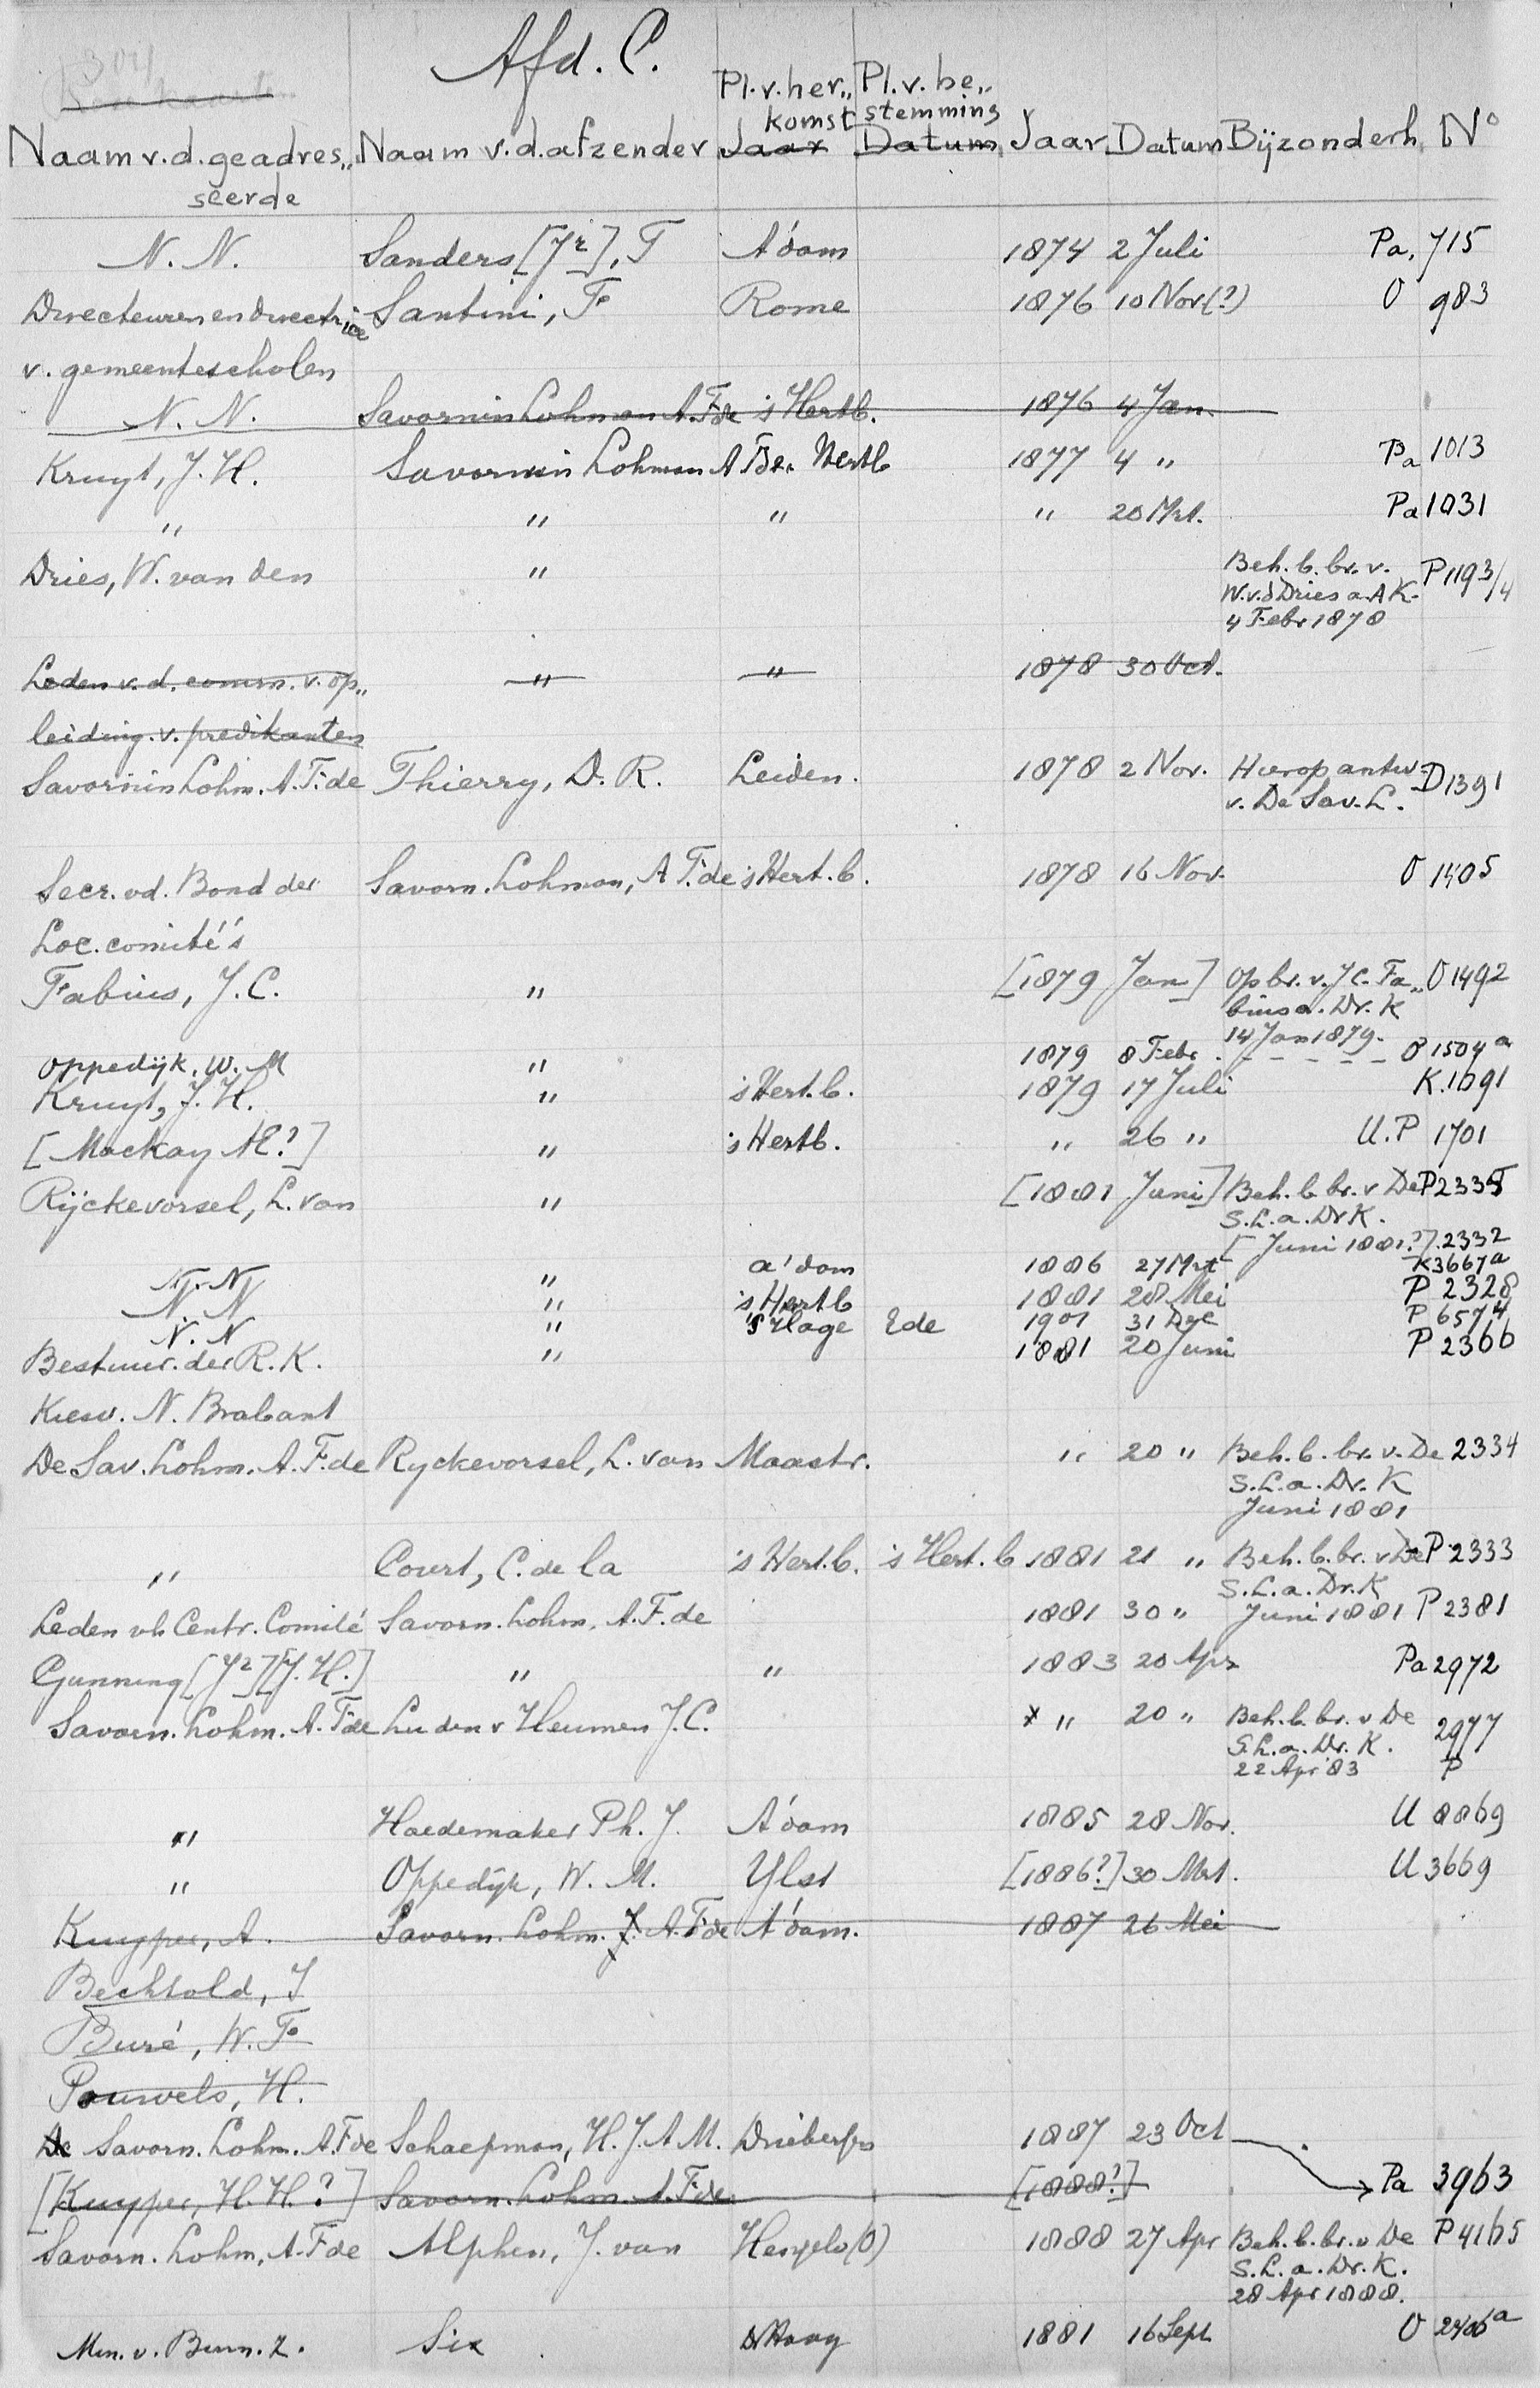 304
Afd. C.
Naam v.d. geadres,, Naam v.d. afzender Pl. v. her,, Pl. v. be,, Jaar Datum Bijzonderh. No
seerde komst stemming
Jaar Datum
N. N. Sanders [Jr], T A'dam 1874 2 Juli Pa. 715
Directeuren en directrice Santini, F Rome 1876 10 Nov (?) O 983
v. gemeentescholen
N. N. Savornin Lohman A.F. de 's Hertb. 1876 4 Jan.
Kruyt, J. H. Savornin Lohman A F de. Hertb 1877 4 " Pa 1013
" " " " 20 Mrt. Pa 1031
Dries, W. van den " Beh. b. br. v. P 1193/4
W. v. d Dries a. A K.
4 Febr 1878
Leden v. d. comm. v. op,, " " 1878 30 Oct.
leiding. v. predikanten
Savornin Lohm. A. F. de Thierry, D. R. Leiden. 1878 2 Nov. Hierop antw. D 1391
v. De Sav. L.
Secr. v d. Bond der Savorn. Lohman, A F. de 's Hert. b. 1878 16 Nov. O 1405
Loc. comité's
Fabius, J. C. " [1879 Jan] Op br. v. J C. Fa,, O 1492
bius a. Dr. K
14 Jan 1879.
Oppedijk. W. M " 1879 8 Febr. - - - - - O 1504 a
Kruyt, J. H. " 's Hert. b. 1879 17 Juli K. 1691
[Mackay AE?] " 's Hertb. " 26 " U. P 1701
Rijckevorsel, L. van " [1881 Juni] Beh. b. br. v De P 2335
S. L. a. Dr K.
[Juni 1881?]. 2332
N. N " a'dam 1886 27 Mrt K 3667a
N. N " 's Hertb 1881 28 Mei P 2328
N. N " 's Hage Ede 1901 31 Dec P 6574
Bestuur. der R. K. " 1881 20 Juni P 2366
Kiesv. N. Brabant
De Sav. Lohm. A. F. de Ryckevorsel, L. van Maastr. " 20 " Beh. b. br. v. De 2334
S. L. a. Dr. K
Juni 1881
" Court, C. de la 's Hert. b. 's Hert. b 1881 21 " Beh. b. br. v De P 2333
S. L. a. Dr. K
Leden v h Centr. Comité Savorn. Lohm. A. F. de 1881 30 " Juni 1881 P 2381
Gunning [Jr] [J. H.] " " 1883 20 Apr Pa 2972
Savorn. Lohm. A. F de Luden v Heumen J. C. " 20 " Beh. b. br. v De 2977
S. L. a. Dr. K. P
22 Apr 83
" Hoedemaker Ph. J. A'dam 1885 28 Nov. U 8869
" Oppedijk, W. M. Ylst [1886?] 30 Mrt. U 3669
Kuyper, A. Savorn. Lohm. J. A. F de A'dam. 1887 26 Mei
Bechtold, J
Buré, W. F
Pauwels, H.
De Savorn. Lohm. A. F de Schaepman, H. J. A M. Driebergen 1887 23 Oct Pa 3963
[Kuyper, H. H.?] Savorn. Lohm. A. F de [1888?]
Savorn. Lohm, A. F de Alphen, J. van Hengelo (O) 1888 27 Apr Beh. b. br. v De P 4165
S. L. a. Dr. K.
28 Apr 1888.
Min. v. Binn. Z. Six D Haag 1881 16 Sept O 2406 a